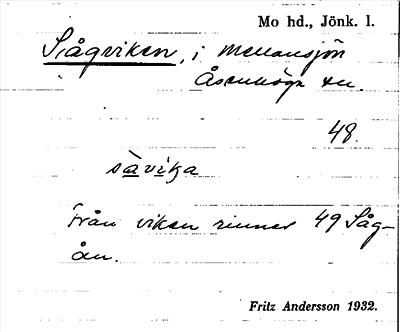 Mo hd., Jönk. l.
Sågviken, i Mellansjön
Åsenhöga sn.
48.
såvika
Från viken rinner 49 Såg-
ån.
Fritz Andersson 1932.